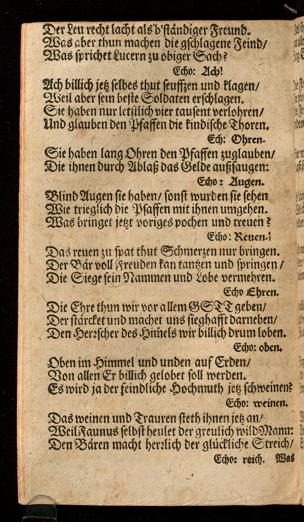 Der Leu recht lacht als b'ständiger Freund.
Was aber thun machen die gschlagene Feind/
Was sprichet Lucern zu obiger Sach?
Echo: Ach!
Ach billich jetz selbes thut seuffzen und klagen/
Weil aber sein beste Soldaten erschlagen.
Sie haben nur letstlich vier tausent verlohren/
Und glauben den Pfaffen die kindische Thoren.
Ech: Ohren.
Sie haben lang Ohren den Pfaffen zuglauben/
Die ihnen durch Ablaß das Gelde außsaugen:
Echo: Augen.
Blind Augen sie haben/ sonst wurden sie sehen
Wie trieglich die Pfaffen mit ihnen umgehen.
Was bringet jetzt voriges pochen und treuen?
Echo: Reuen!
Das reuen zu spat thut Schmerzen nur bringen.
Der Bär voll Freuden kan tantzen und springen/
Die Siege sein Nammen und Lobe vermehren.
Echo Ehren.
Die Ehre thun wir vor allem GOTT geben/
Der stärcket und machet uns sieghafft darneben/
Den Herrscher des Him̃els wir billich drum loben.
Echo: oben.
Oben im Himmel und unden auf Erden/
Von allen Er billich gelobet soll werden.
Es wird ja der feindliche Hochmuth jetz schweinen?
Echo: weinen.
Das weinen und Trauren steth ihnen jetz an/
Weil Faunus selbst heulet der greulich wild Mann:
Den Bären macht herzlich der glückliche Streich/
Echo: reich. Was